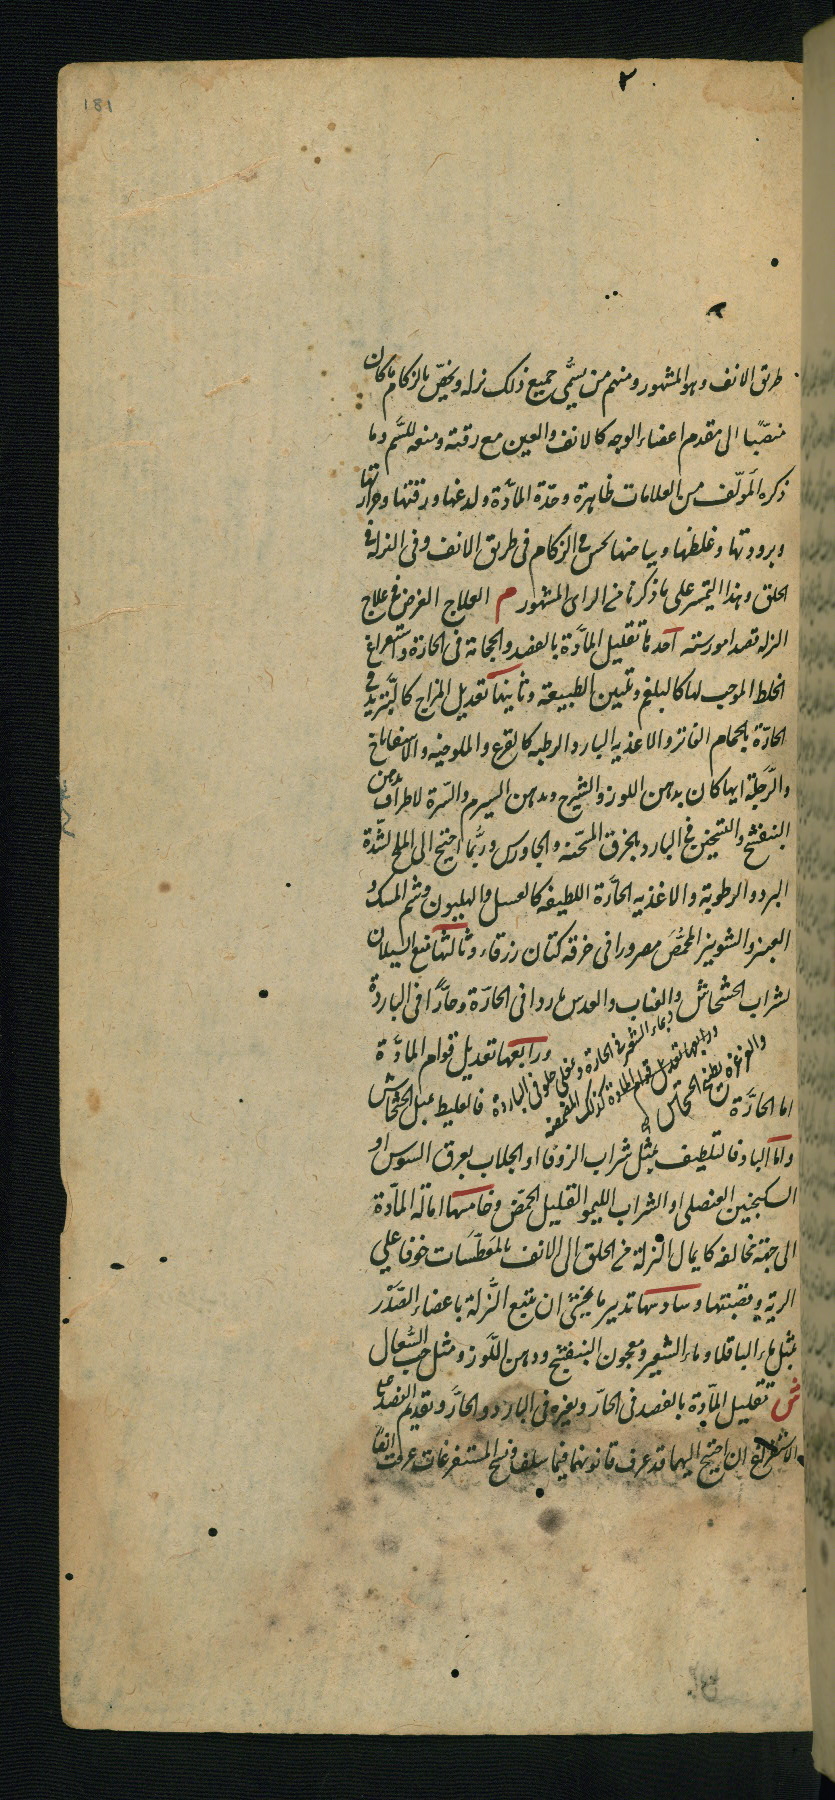 181
٢
طريق الانف وهو المشهور ومنهم من يسمّى جميع ذلك نزله ويخصّ بالزكام ما كان
منصبّا الى مقدم اعضاء الوجه كالانف والعين مع رقته ومنعه للشم وما
ذكره المؤلّف من العلامات ظاهرة وحدّة المادّة ولدغها ورقتها وحرارتها
وبرودتها وغلظها وبياضها يحس فى الزكام فى طريق الانف وفى النزله فى
الحلق وهذا التفسير على ما ذكرنا من الراى المشهور م العلاج الغرض فى علاج
النزله قصد امور ستة احدها تقليل المادّة بالفصد والحجامة فى الحارة واستفراغ
الخلط الموجب لها كالبلغم وتليين الطبيعة وثانيها تعديل المزاج كالتبريد فى
الحارّة بالحمام الفاتر والاغذيه الباردة الرطبه كالقرع والملوخيه والاسفاناخ
والرّجلة ايها كان بدهن اللوز والشيرج ودهن السرم والسّرة والاطراف بدهن
البنفسج والتسخين فى الباردة بالخرق المسخّنه والجاورس وربّما احتيج الى الملح لشدّة
البرد والرطوبة والاغذيه الحارّة اللطيفه كالعسل والهليون وشم المسك و
العنبر والشونيز المحمّص مصرورا فى خرقه كتان زرقاء وثالثها منع السيلان
بشراب الخشخاش والعناب والعدس باردا فى الحارّة وحارّا فى الباردة
والغرغرة بطبيخ الخشخاش
وماء الشعير فى الحارة
ورابعها تعديل قوام المادّة
كذلك المضمضه
اما الحارّة فالتغليظ بمثل الخشخاش
واما البارد فالتلطيف بمثل شراب الزوفا او الجلاب بعرق السوس او
السكنجبين العنصلى او الشراب الليمو القليل الحمّض وخامسها امالة المادّة
الى جهة مخالفه كما يمال النزلة من الحلق الى الانف بالمعطّسات خوفا على
الرية وقصبتها وسادسها تدبير ما يخشى ان يتبع النّزلة باعضاء الصّدر
بمثل ماء الباقلا وماء الشعير ومعجون البنفسج ودهن اللّوز ومثل حب السّعال
ش تقليل المادّة بالفصد فى الحارّ وبغيره فى البارد والحارّ وتقديم الفصد على
الاستفراغ ان احتيج اليهما قد عرف قانونهما فيما سلف ونسخ المستفرغات عرفت انفا